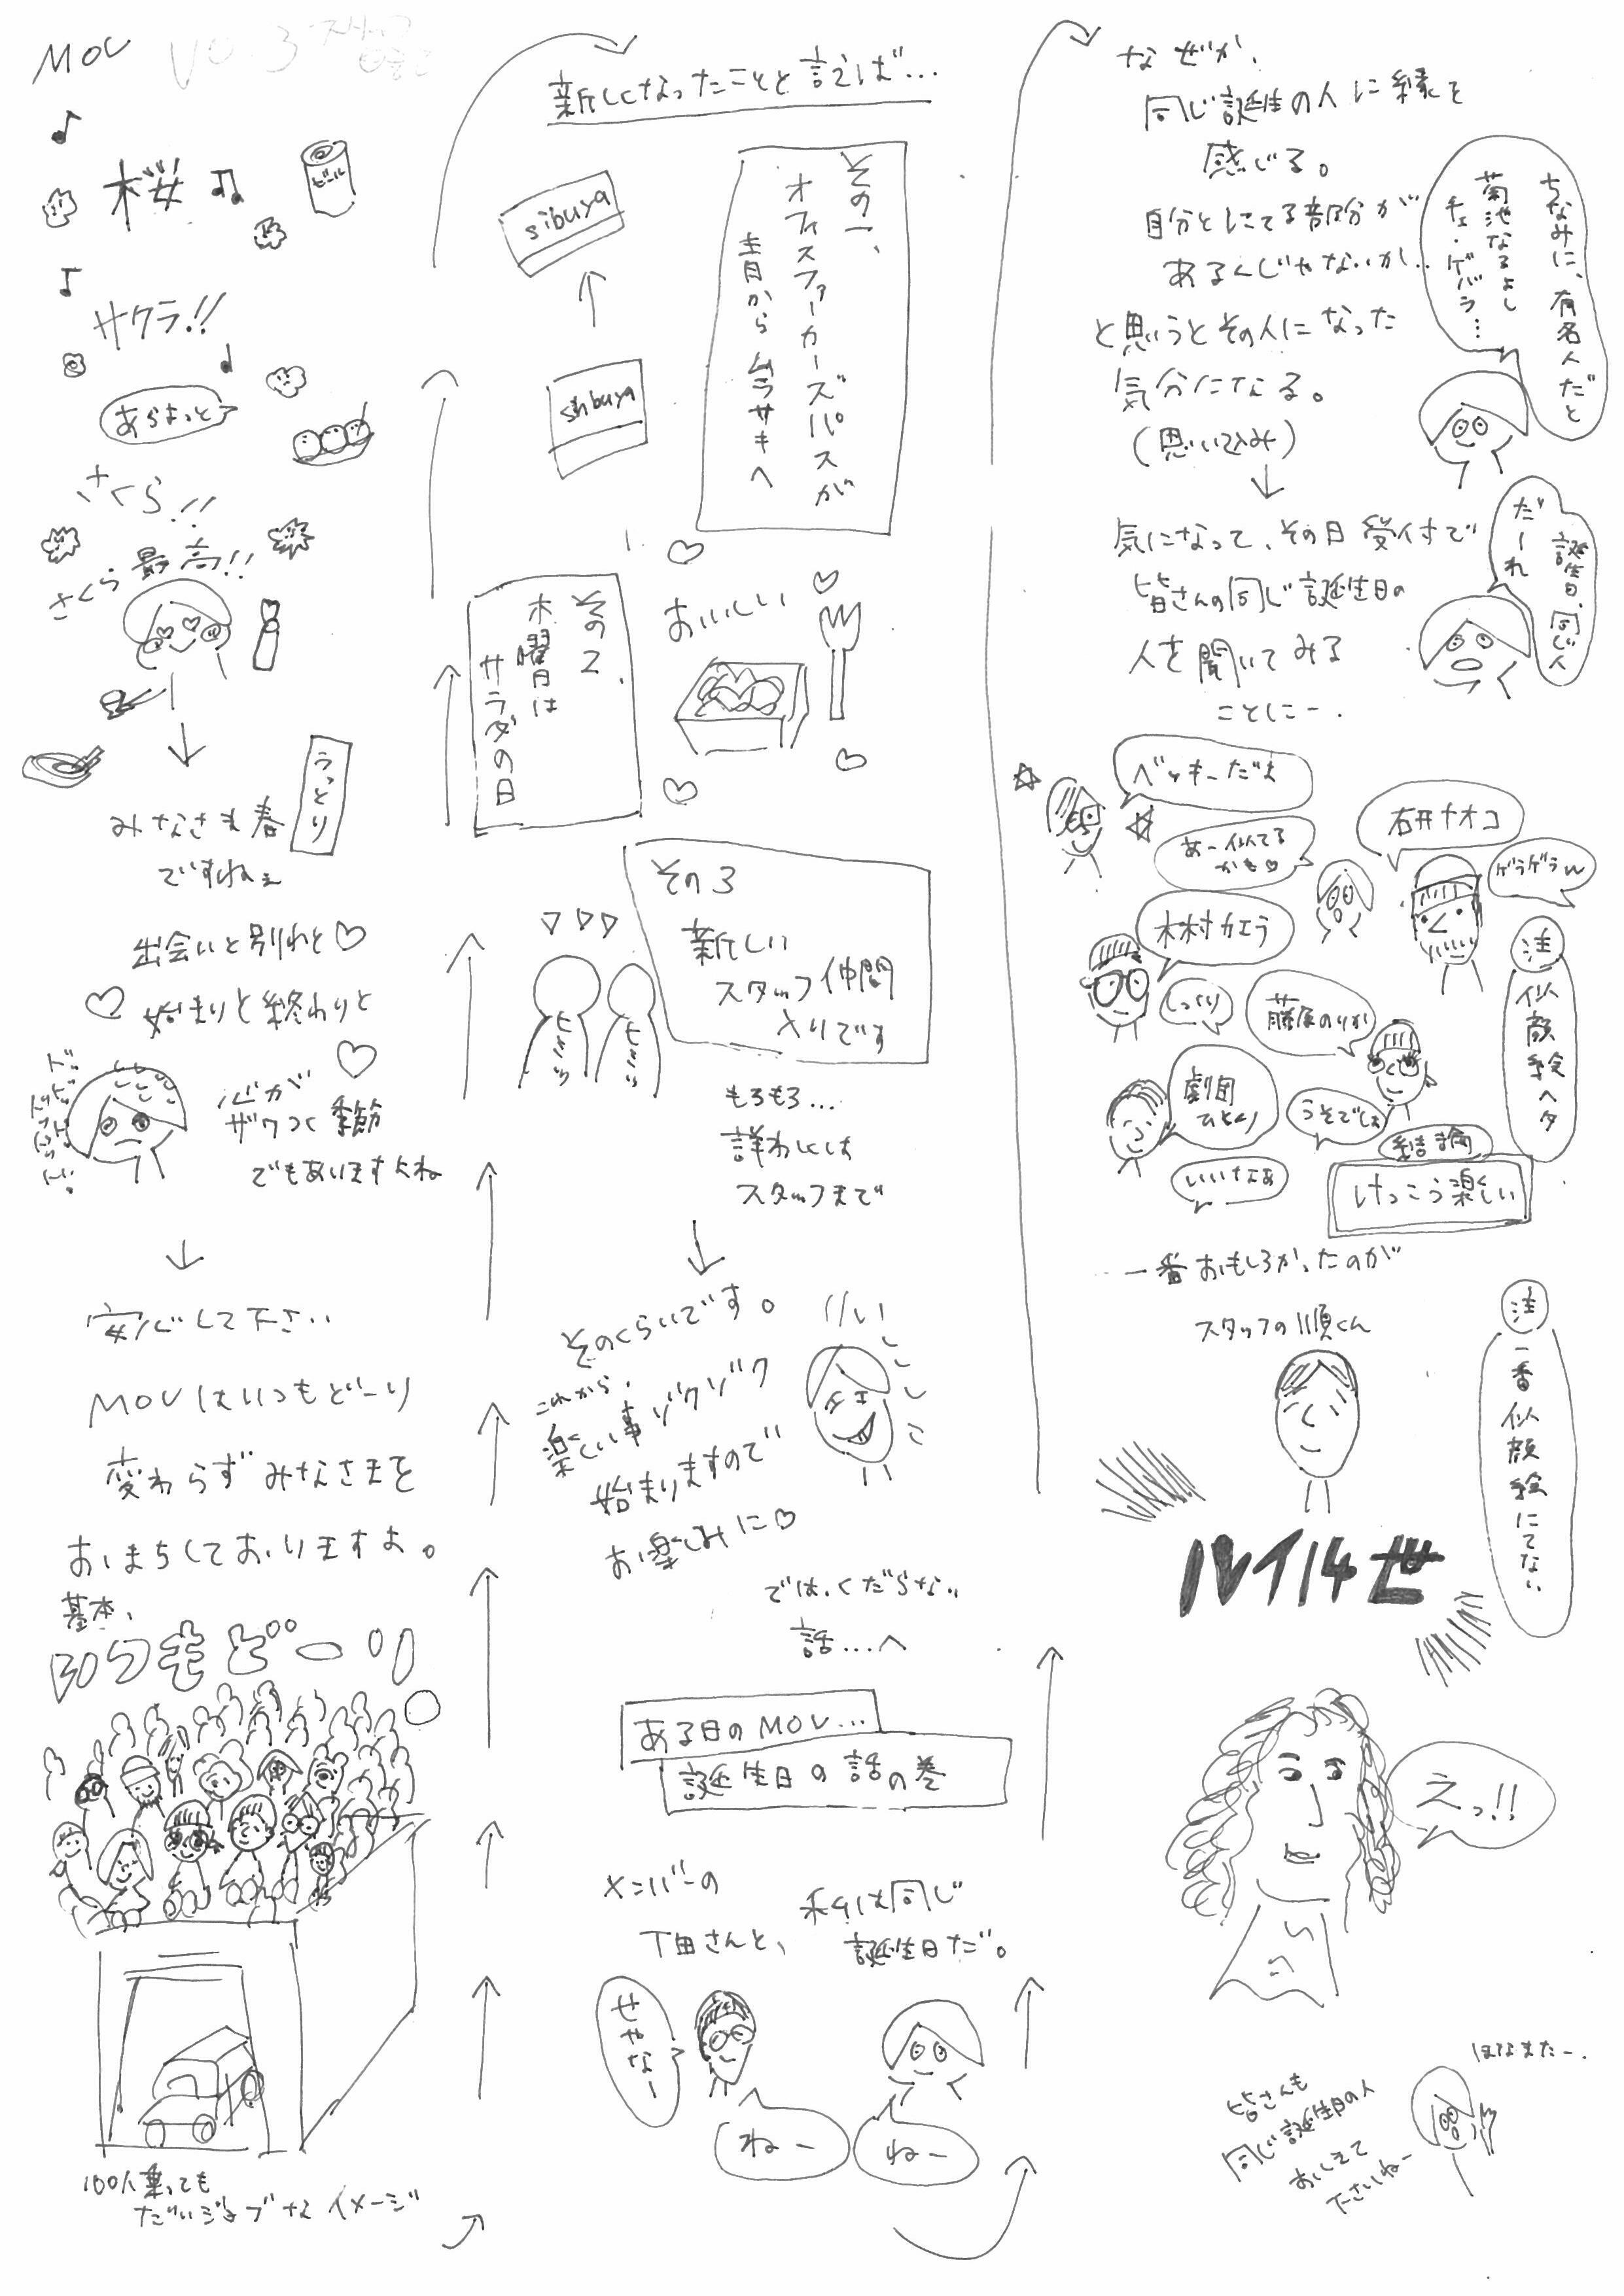 MOV Vo.3 スタッフ日記
桜
ビール
サクラ!!
あらよっと
さくら!!
さくら最高!!
うっとり
みなさま春
ですねぇ
出会いと別れと
始まりと終わりと
心が
ザワつく季節
でもありますよね
安心して下さい
MOVはいつもどーり
変わらずみなさまを
おまちしておりますよ。
基本、
いつもどーり
100人乗っても
だいジョブなイメージ
新しくなったことと言えば…
その一、
オフィスファーカーズパスが
青からムラサキへ
sibuya
shibuya
その2、
木曜日は
サラダの日
おいしい
その3
新しい
スタッフ仲間
入りです
ヒミツ
ヒミツ
もろもろ…
詳わしくは
スタッフまで
そのくらいです。
これから、
楽しい事ゾクゾク
始まりますので
お楽しみに
では、くだらない
話…へ
ある日のMOV…
誕生日の話の巻
メンバーの
下田さんと、
私は同じ
誕生日だ。
せやなー
ねー
ねー
なぜか、
同じ誕生の人に縁を
感じる。
自分とにてる部分が
あるんじゃないか…
と思うとその人になった
気分になる。
(思い込み)
ちなみに、有名人だと
菊池なるよし
チェ・ゲバラ…
気になって、その日受付で
皆さんの同じ誕生日の
人を聞いてみる
ことにー.
誕生日、同じ人
だーれ
ベッキーだよ
あー似てる
かも
石井ナオコ
ゲラゲラw
木村カエラ
しっくり
藤原のりか
劇団
ひとり
うそでしょ
いいなぁ
注
似顔絵ヘタ
結論
けっこう楽しい
一番おもしろかったのが
スタッフの順くん
注
一番似顔絵にてない
ルイ14世
えっ!!
ほなまたー.
皆さんも
同じ誕生日の人
おしえて
下さいねー